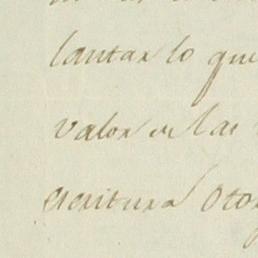 lantar lo que
valor en las
escritura Oto